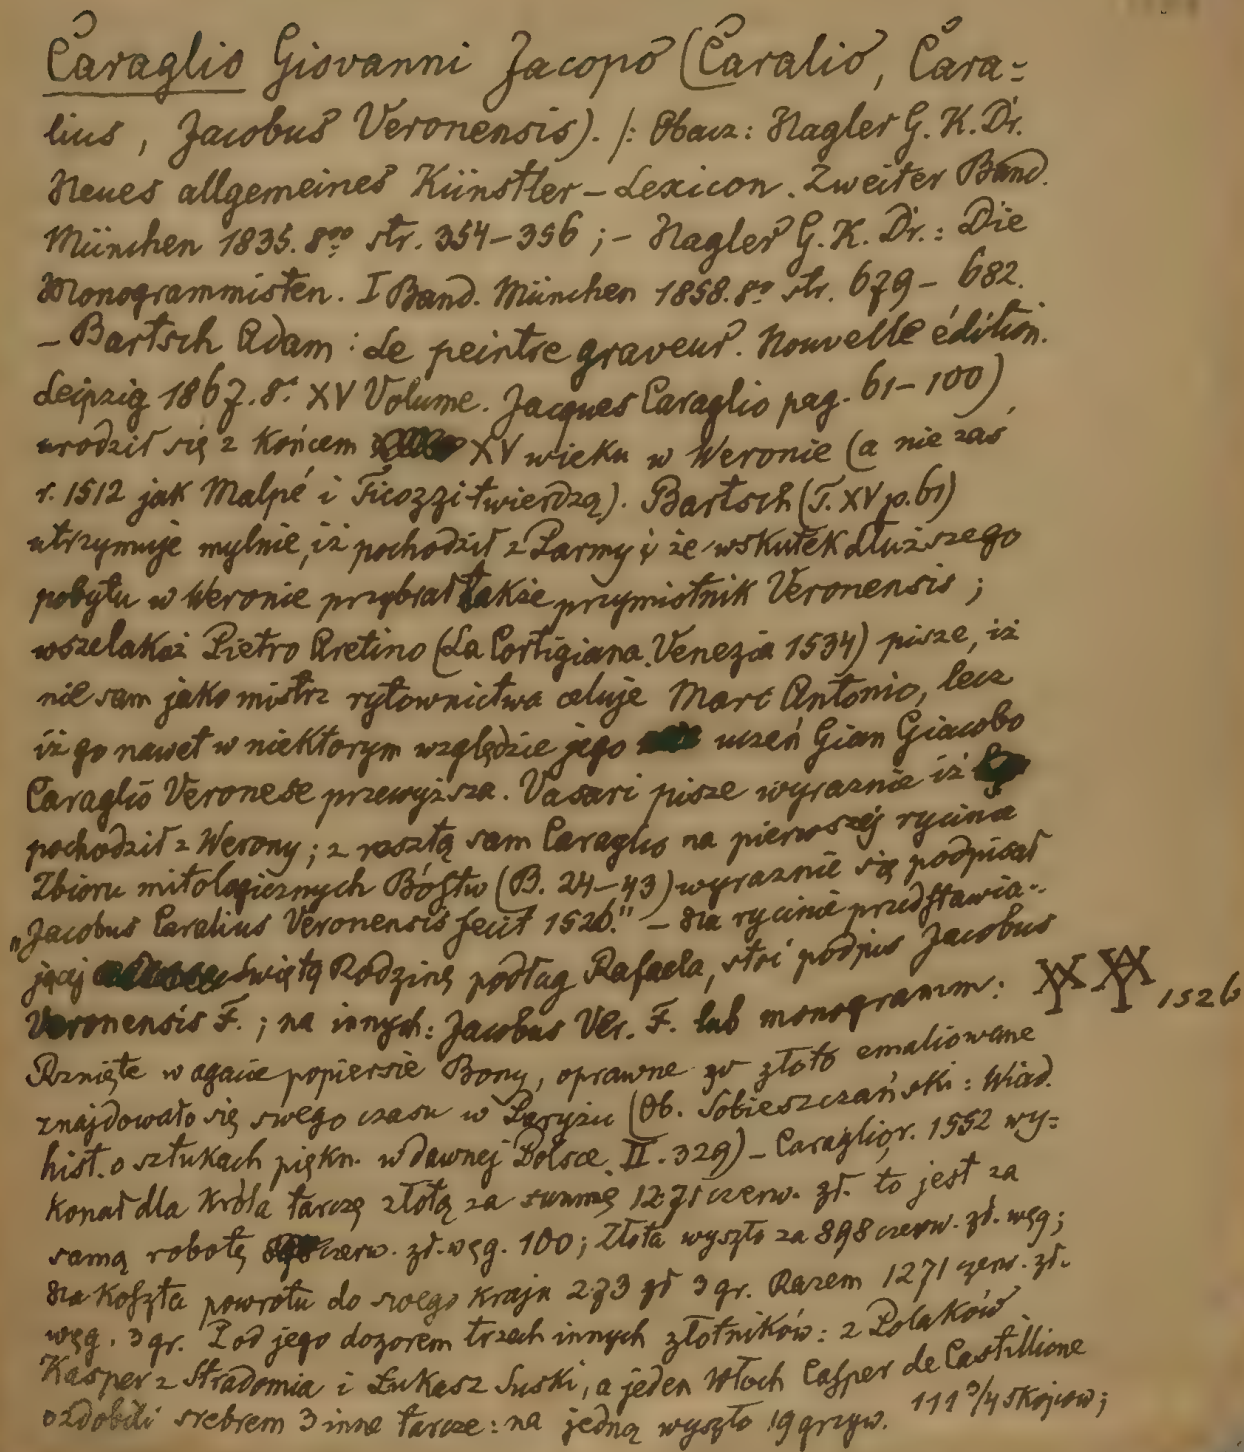 Caraglio Giovanni Jacopo (Caralio, Cara=
lius, Jacobus Veronensis). /: Obacz: Nagler G. K. Dr.
Neues allgemeines Künstler-Lexicon. Zweiter Band.
München 1835. 8vo str. 354-356; - Nagler G. K. Dr.: Die
Monogrammisten. I Band. München 1858. 8o str. 679-682.
- Bartsch Adam: Le peintre graveur. Nouvelle édition.
Leipzig 1867. 8o XV Volume. Jacques Caraglio pag. 61-100)
urodził się z końcem XV wieku w Weronie (a nie zaś
r. 1512 jak Malpé i Ticozzi twierdzą). Bartsch (T. XV p. 61)
utrzymuje mylnie, iż pochodził z Parmy i że wskutek dłuższego
pobytu w Weronie przybrał także przymiotnik Veronensis;
wszelakoż Pietro Aretino (La Cortigiana. Venezia 1534) pisze, iż
nie sam jako mistrz rytownictwa celuje Marc Antonio, lecz
iż go nawet w niektorym względzie jego uczeń Gian Giacobo
Caraglio Veronese przewyższa. Vasari pisze wyraznie iż
pochodził z Werony; z resztą sam Caraglio na pierwszéj rycinie
Zbioru mitologicznych Bóstw (B. 24-43) wyraznie się podpisał
„Jacobus Caralius Veronensis fecit 1526." - Na rycinie przedstawia-
jącej Świętą Rodzinę podług Rafaela, stoi podpis Jacobus
Veronensis F.; na innych: Jacobus Ver. F. lub monogramm: 1526
Rznięte w agacie popiersie Bony, oprawne w złoto emaliowane
znajdowało się swego czasu w Paryżu (Ob. Sobieszczański: Wiad.
hist. o sztukach piękn. w dawnej Polsce. II. 329) - Caraglio r. 1552 wy=
konał dla Króla tarczę złotą za summę 1271 czerw. zł. to jest za
samą robotę czerw. zł. węg. 100; Złota wyszło za 898 czerw. zł. węg;
Na koszta powrotu do swego kraju 273 zł 3 gr. Razem 1271 czerw. zł.
węg. 3 gr. Pod jego dozorem trzech innych złotników: 2 Polaków
Kasper z Stradomia i Łukasz Suski, a jeden Włoch Casper de Castillione
ozdobili srebrem 3 inne tarcze: na jedną wyszło 19 grzyw. 11 1 3/4 skojców;